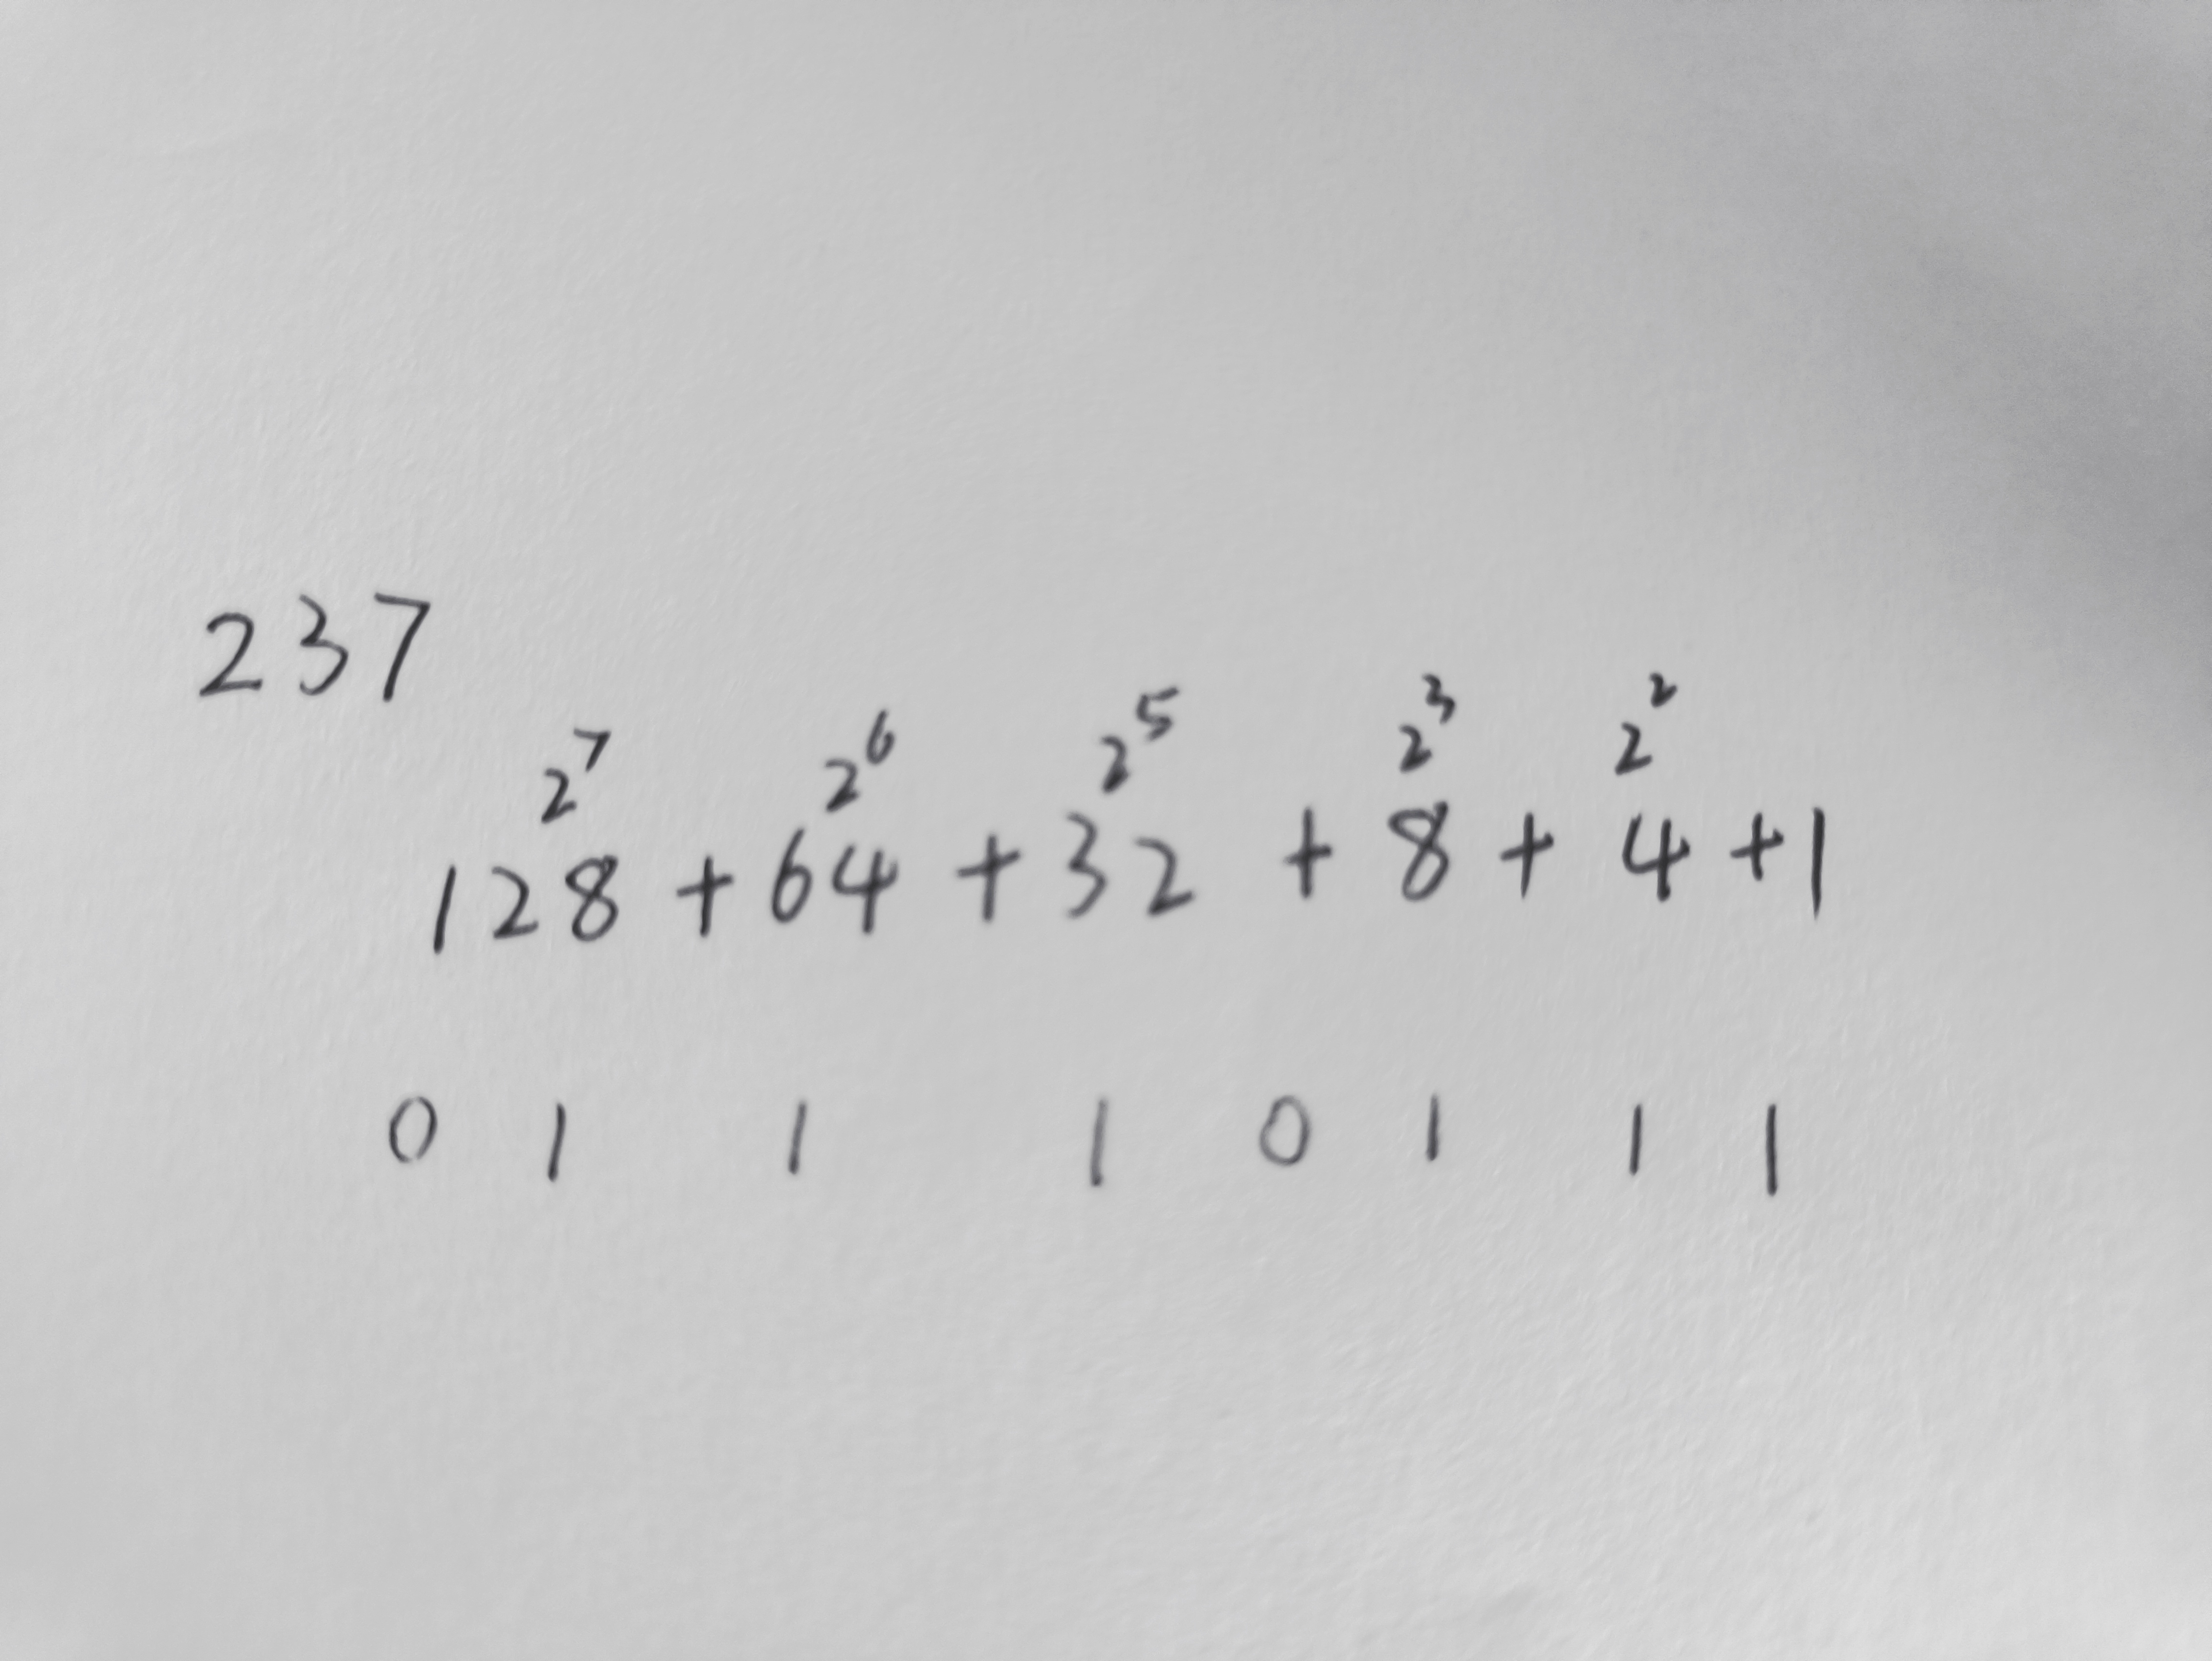 237
2⁷ 2⁶ 2⁵ 2³ 2²
128 + 64 + 32 + 8 + 4 + 1
0 1 1 1 0 1 1 1